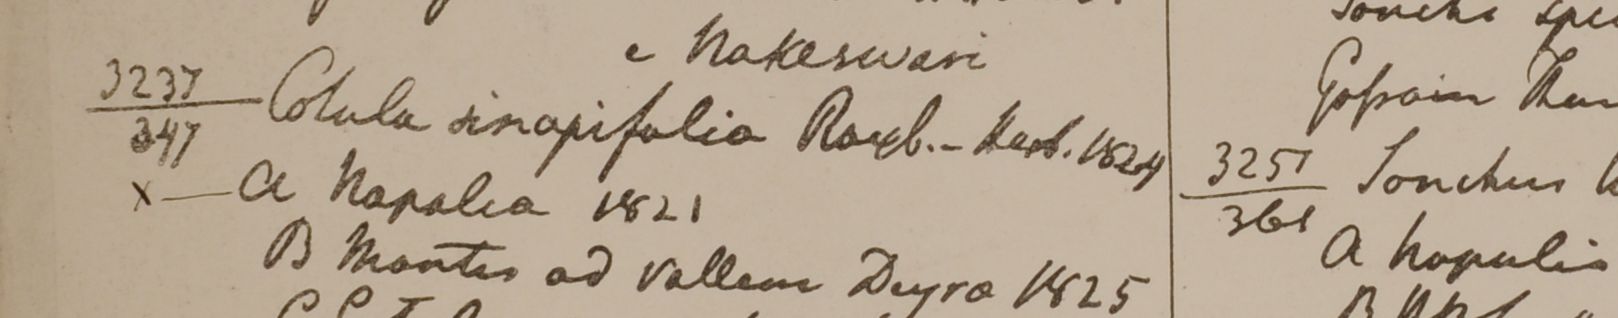 c Nakeswari
3237
347
Cotula sinapifolia Roxb. - Herb. 1824
x — a Napalia 1821
B Montes ad vallem Deyra 1825
Sonchi spe
Gossain Than
3251
361
Sonchus
a Napalia
B